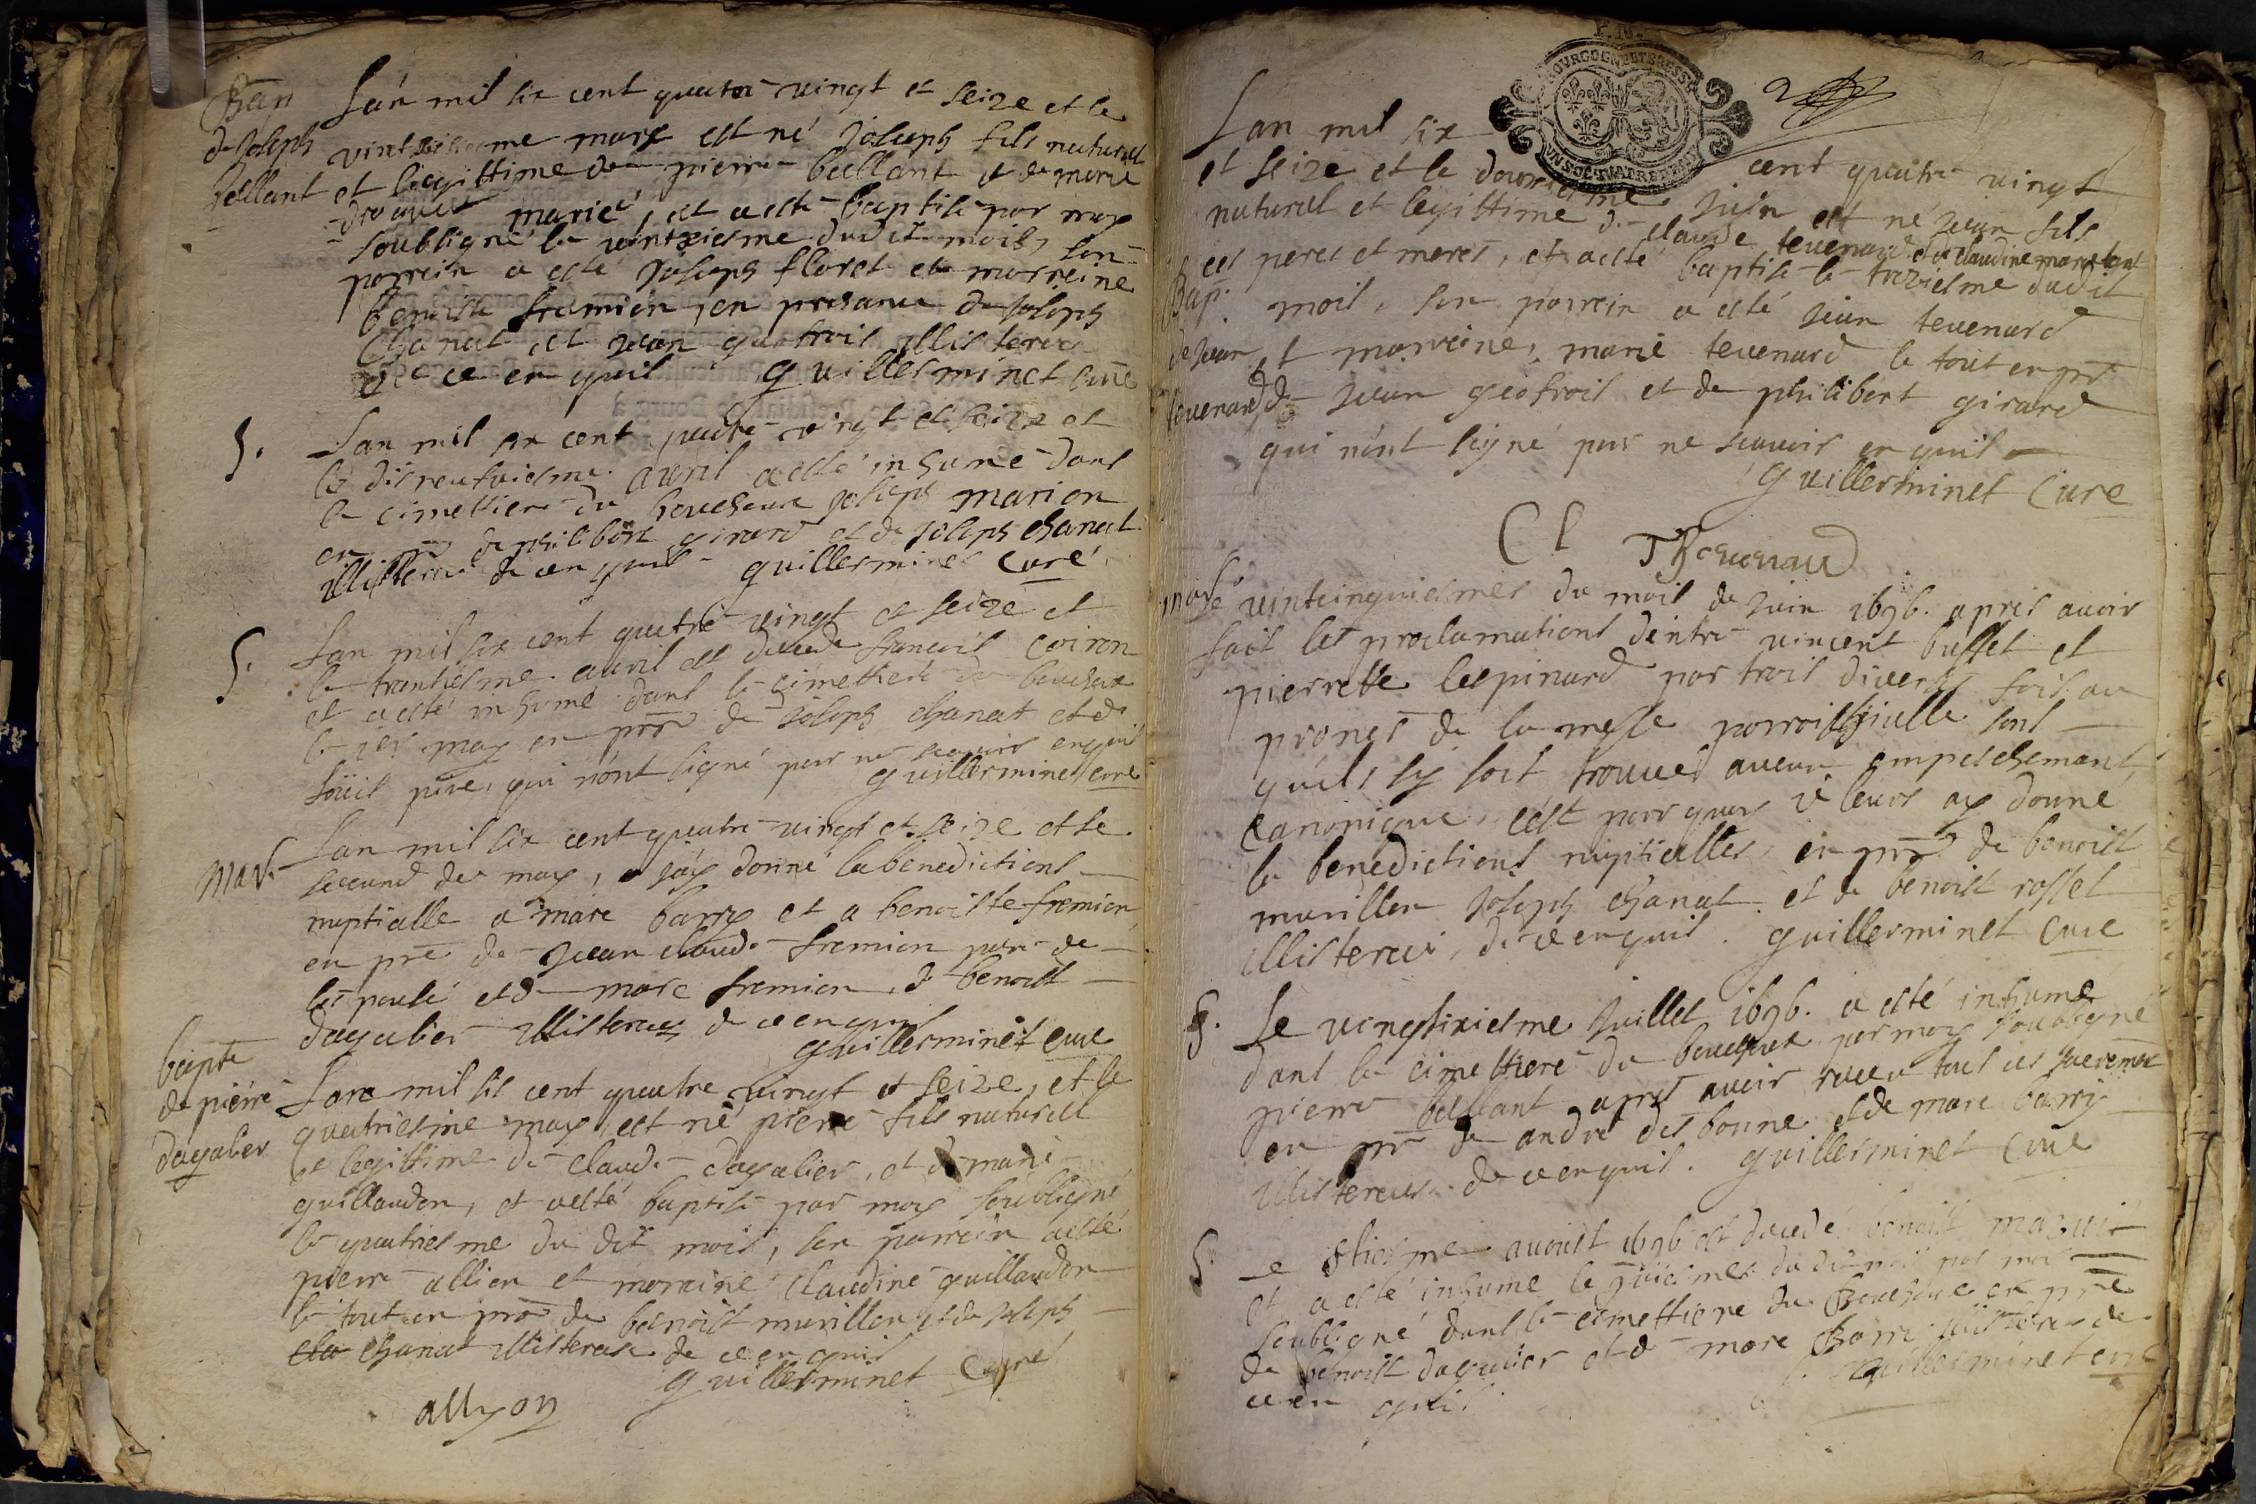 Bap
de Joseph
bellant
Lan mil six cent quatre vingt et seize et le
mars est né Joseph fils naturel
et legittime de pierre bellant et de marie
mariés, et a esté baptisé par moy
soubsigné le dudit mois, son
parrein a esté Joseph floret et marreine
benoiste fremion, en presance de Joseph
Chanat et Jean illisterés
de ce enquis guillerminet curé
S.
Lan mil six cent quatre vingt et seize et
le disneufviesme avril a esté inhumé dans
le cimettiere du bouchoux Joseph marion
en pñce de philibert girard et de Joseph chanat
illisteres de ce enquis guillerminet curé
S.
Lan mil six cent quatre vingt et seize et
le trantiesme avril est decede francois coiron
et a esté inhumé dans le cimettiere du bouchoux
le may en pñce de Joseph chanat et de
père, qui n'ont signé pour ne scavoir enquis
guillerminet curé
Mar.
Lan mil six cent quatre vingt et seize et le
second de may, jay donné la benedictions
nuptialle a marc barry et a benoiste fremion
en pñce de Jean claude fremion pere de
lespousé et de marc fremion, de benoist
dagalier illisteres de ce enquis
guillerminet curé
bapte
de pierre
dagalier
Lan mil six cent quatre vingt et seize, et le
quatriesme may est né pierre fils naturel
et legittime de claude dagalier, et de marie
guillaudon, et a esté baptisé par moy soubsigné
le quatriesme du dit mois, son parrein a esté
pierre allion et marraine claudine guillaudon
le tout en pñce de benoist marillon et de Joseph
cha chanat illisteres de ce enquis
guillerminet curé
allyon
BOURGOGNE ET BRESSE
Lan mil six cent quatre vingt
et seize et le douziesme Juin est né Jean fils
natural et legittime de claude tevenard et de claudine
ces peres et meres, et a esté baptisé le treziesme dudit
Bap.
de Jean
tevenard
mois, son parrein a esté Jean tevenard
et marreine, marie tevenard le tout en pñce
de Jean geofrois et de philibert girard
qui n'ont signé pour ne scavoir enquis
guillerminet Cure
Cl Thevenard
mar.
Le vintcinquiesmes du mois de Juin 1696. apres avoir
fait les proclamations d'entre vincent buffet et
pierrette lespinard par trois diverses fois au
prones de la messe parroissialle sans
quils sy soit trouvés aucun empeschemant
canonique, c'est pourquoy je leurs ay donné
la benedictions nuptialles en pñce de benoist
marillon Joseph chanat et de benoist rosset
illisterés, de ce enquis. guillerminet Cure
S.
Le vingtsixiesme Juillet 1696. a esté inhumé
dans le cimettiere du bouchoux par moy soubsigné
pierre bellant apres avoir receu tous ces sacremens
en pñce de andré desbonne et de marc barry
illisteres de ce enquis. guillerminet Cure
S.
Le avoust 1696 est decedé benoist
et a esté inhumé le du dit mois par moy
soubsigné dans le cimettiere du Bouchoux en pñce
de benoist dagalier et de marc Barri illisteres de
ce en quis. guillerminet curé